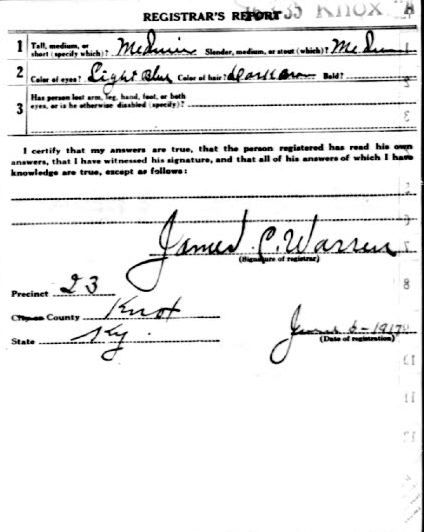 Knox
REGISTRAR'S REPORT
1 Tall, medium, or short (specify which)? Medium Slender, medium, or stout (which)? Medium
2 Color of eyes? Light Blue Color of hair? Bald?
3 Has person lost arm, leg, hand, foot, or both eyes, or is he otherwise disabled (specify)?
I certify that my answers are true, that the person registered has read his own
answers, that I have witnessed his signature, and that all of his answers of which I have
knowledge are true, except as follows:
James C. Warren
(Signature of registrar)
Precinct 23
City or County Knox
State Ky.
June 5-1917
(Date of registration)